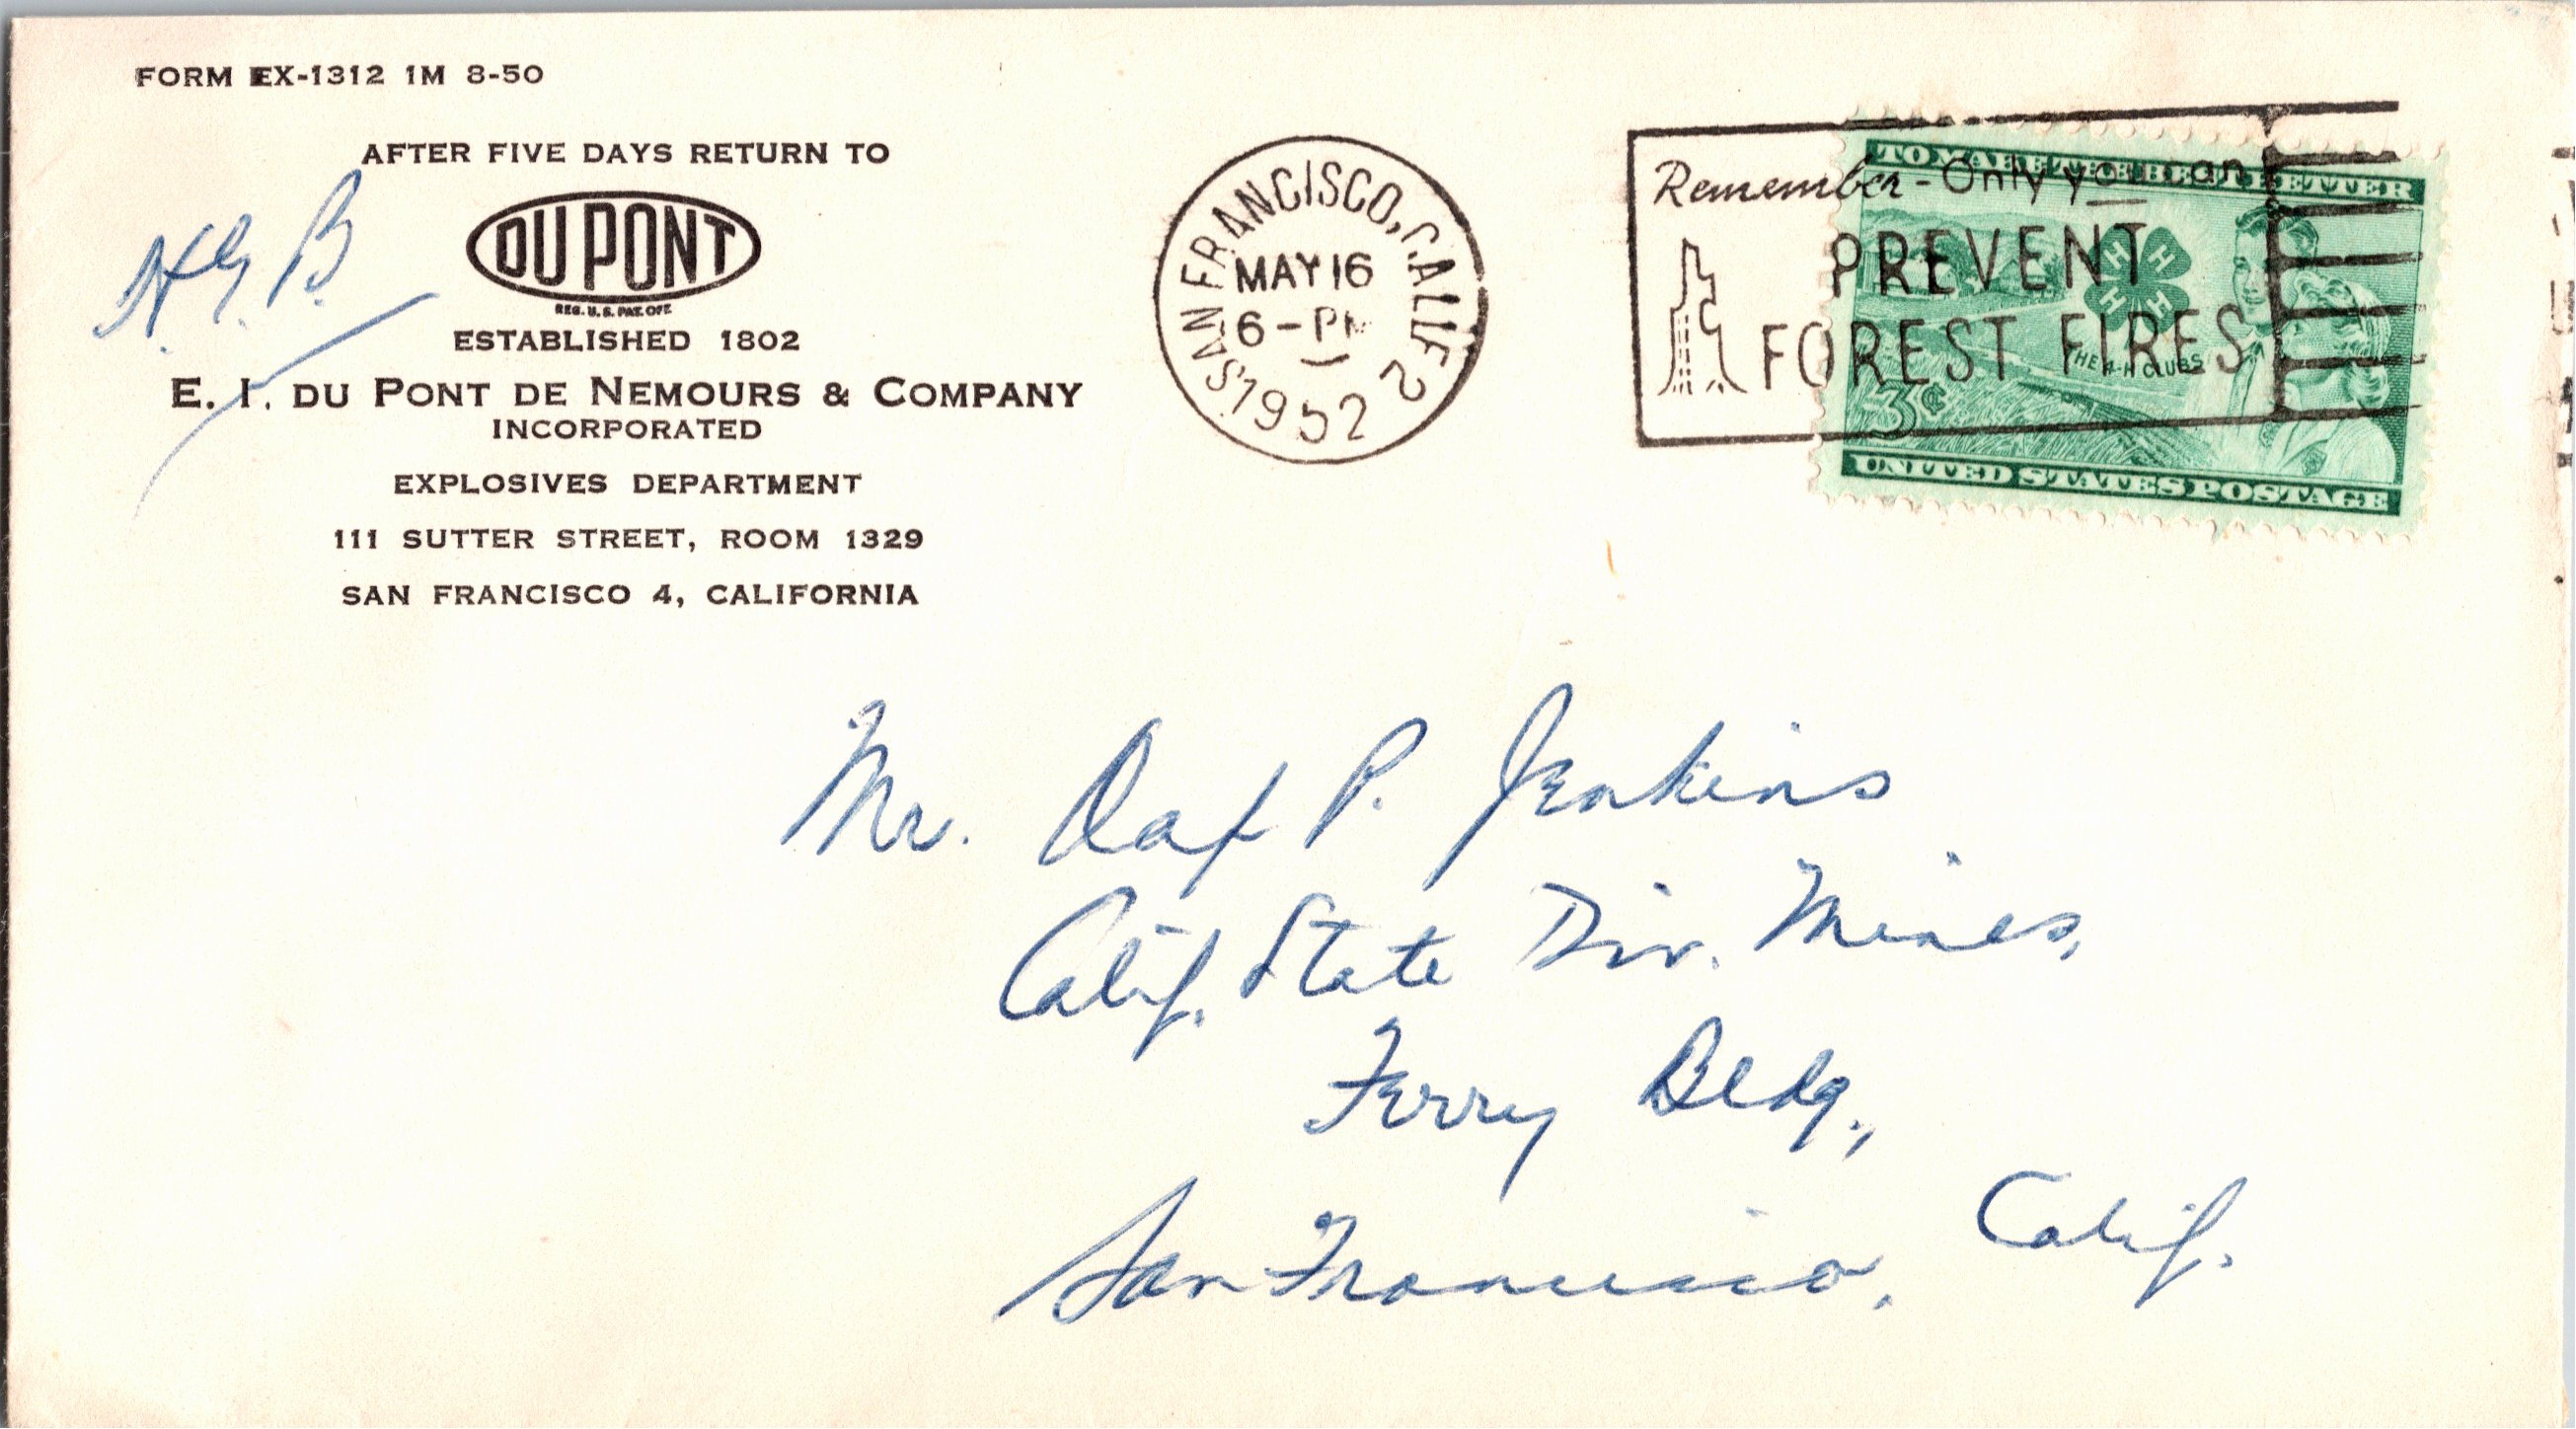 FORM EX-1312 1M 8-50
AFTER FIVE DAYS RETURN TO
H.G. B.
DU PONT
REG. U. S. PAT. OFF.
ESTABLISHED 1802
E. I. DU PONT DE NEMOURS & COMPANY
INCORPORATED
EXPLOSIVES DEPARTMENT
111 SUTTER STREET, ROOM 1329
SAN FRANCISCO 4, CALIFORNIA
SAN FRANCISCO, CALIF 2
MAY 16
6-PM
1952
Remember - Only you can
PREVENT
FOREST FIRES
TO MAKE THE BEST BETTER
H H H H
THE 4-H CLUBS
3¢
UNITED STATES POSTAGE
Mr. Olaf P. Jenkins
Calif. State Div. Mines,
Ferry Bldg.,
San Francisco, Calif.